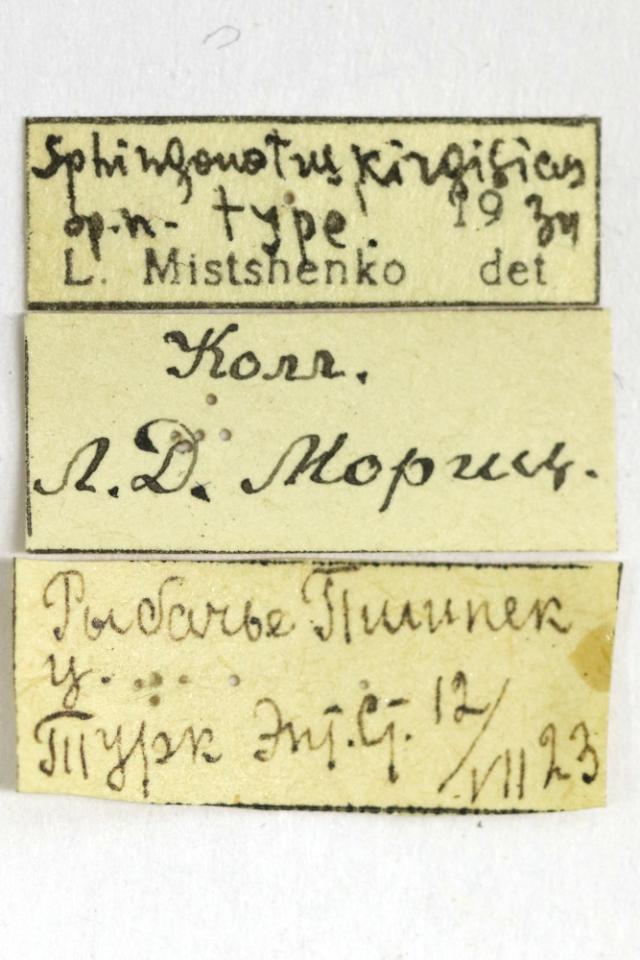 Sphingonotus kirgisicus
sp.n. type. 19 34
L. Mistshenko det
Колл.
Л.Д. Мориц.
Рыбачье Пишпек
у.
Турк Энт.Ст. 12/VII 23